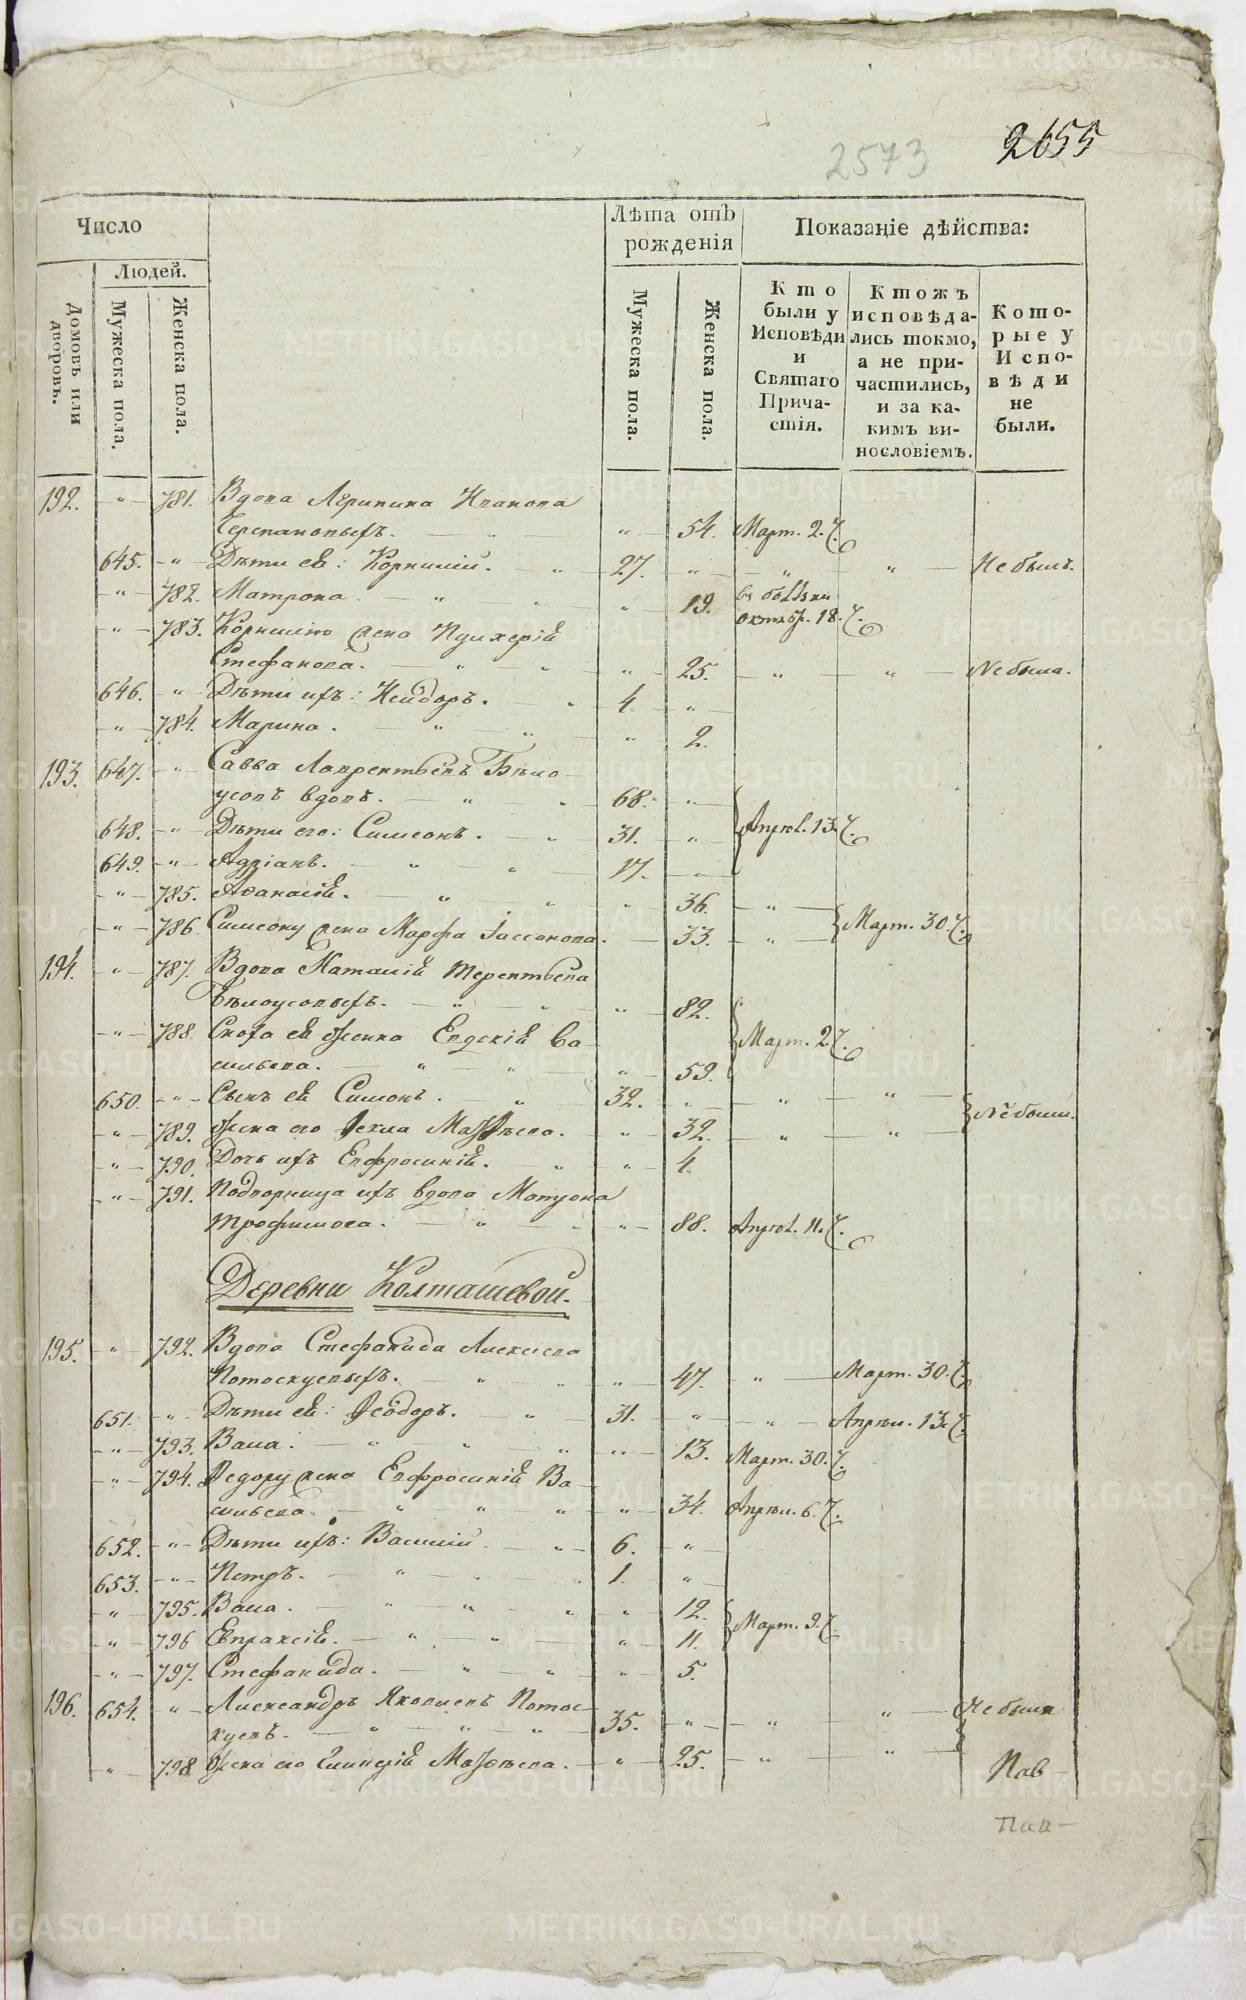 2573 2655
Число
Лѣта отъ рожденія
Показаніе дѣйства:
Людей.
Домовъ или дворовъ.
Мужеска пола.
Женска пола.
Мужеска пола.
Женска пола.
Кто были у Исповѣди и Святаго Причастія.
Ктожъ исповѣдались токмо, а не причастились, и за какимъ винословіемъ.
Которые у Исповѣди не были.
192. " 781. Вдова Агрипина Иванова
Черепановыхъ. " 54. Март. 27.
645. " Дѣти ея: Корнилій. 27. " " " Не былъ.
" 782. Матрона " 19. въ болѣзни октяб. 18.
" 783. Корнилію жена Пулхерія
Стефанова. " 25. " " Не была.
646. " Дѣти ихъ: Исидоръ. 4. "
" 784. Марина. " 2.
193. 647. " Савва Лаврентьевъ Бѣло-
усовъ вдовъ. 68. "
648. " Дѣти его: Симеонъ. 31. " Апрѣл. 13.
649. " Адріанъ. 17. "
" 785. Афанасія. " 36. "
" 786. Симеону жена Марфа " 33. " Март. 30.
194. " 787. Вдова Наталія Терентьева
Бѣлоусовыхъ. " 82.
" 788. Сноха ея Евдокія Ва-
сильева. " 59. Март. 27.
650. " Сынъ ея Симонъ. 32. " " "
" 789. Жена его Фекла Матѳѣева. " 32. " " Не были.
" 790. Дочь ихъ Евфросинія. " 4.
" 791. вдова Матрона
Трофимова. " 88. Апрѣл. 11.
Деревни Колташевой.
195. " 792. Вдова Стефанида Алексѣева
Потоскуевыхъ. " 47. " Март. 30.
651. " Дѣти ея: Ѳеодоръ. 31. " " Апрѣл. 13.
" 793. Васса. " 13. Март. 30.
" 794. Ѳедору жена Евфросинія Ва-
сильева. " 34. Апрѣл. 6.
652. " Дѣти ихъ: Василій. 6. "
653. " Петръ. 1. "
" 795. Васса. " 12.
" 796 Евпраксія. " 11. Март. 9.
" 797. Стефанида. " 5.
196. 654. " Александръ Яковлевъ Потос-
куевъ. 35. " " " Не были
" 798 Жена его Гликерія Матѳѣева. " 25. " "
Пав-